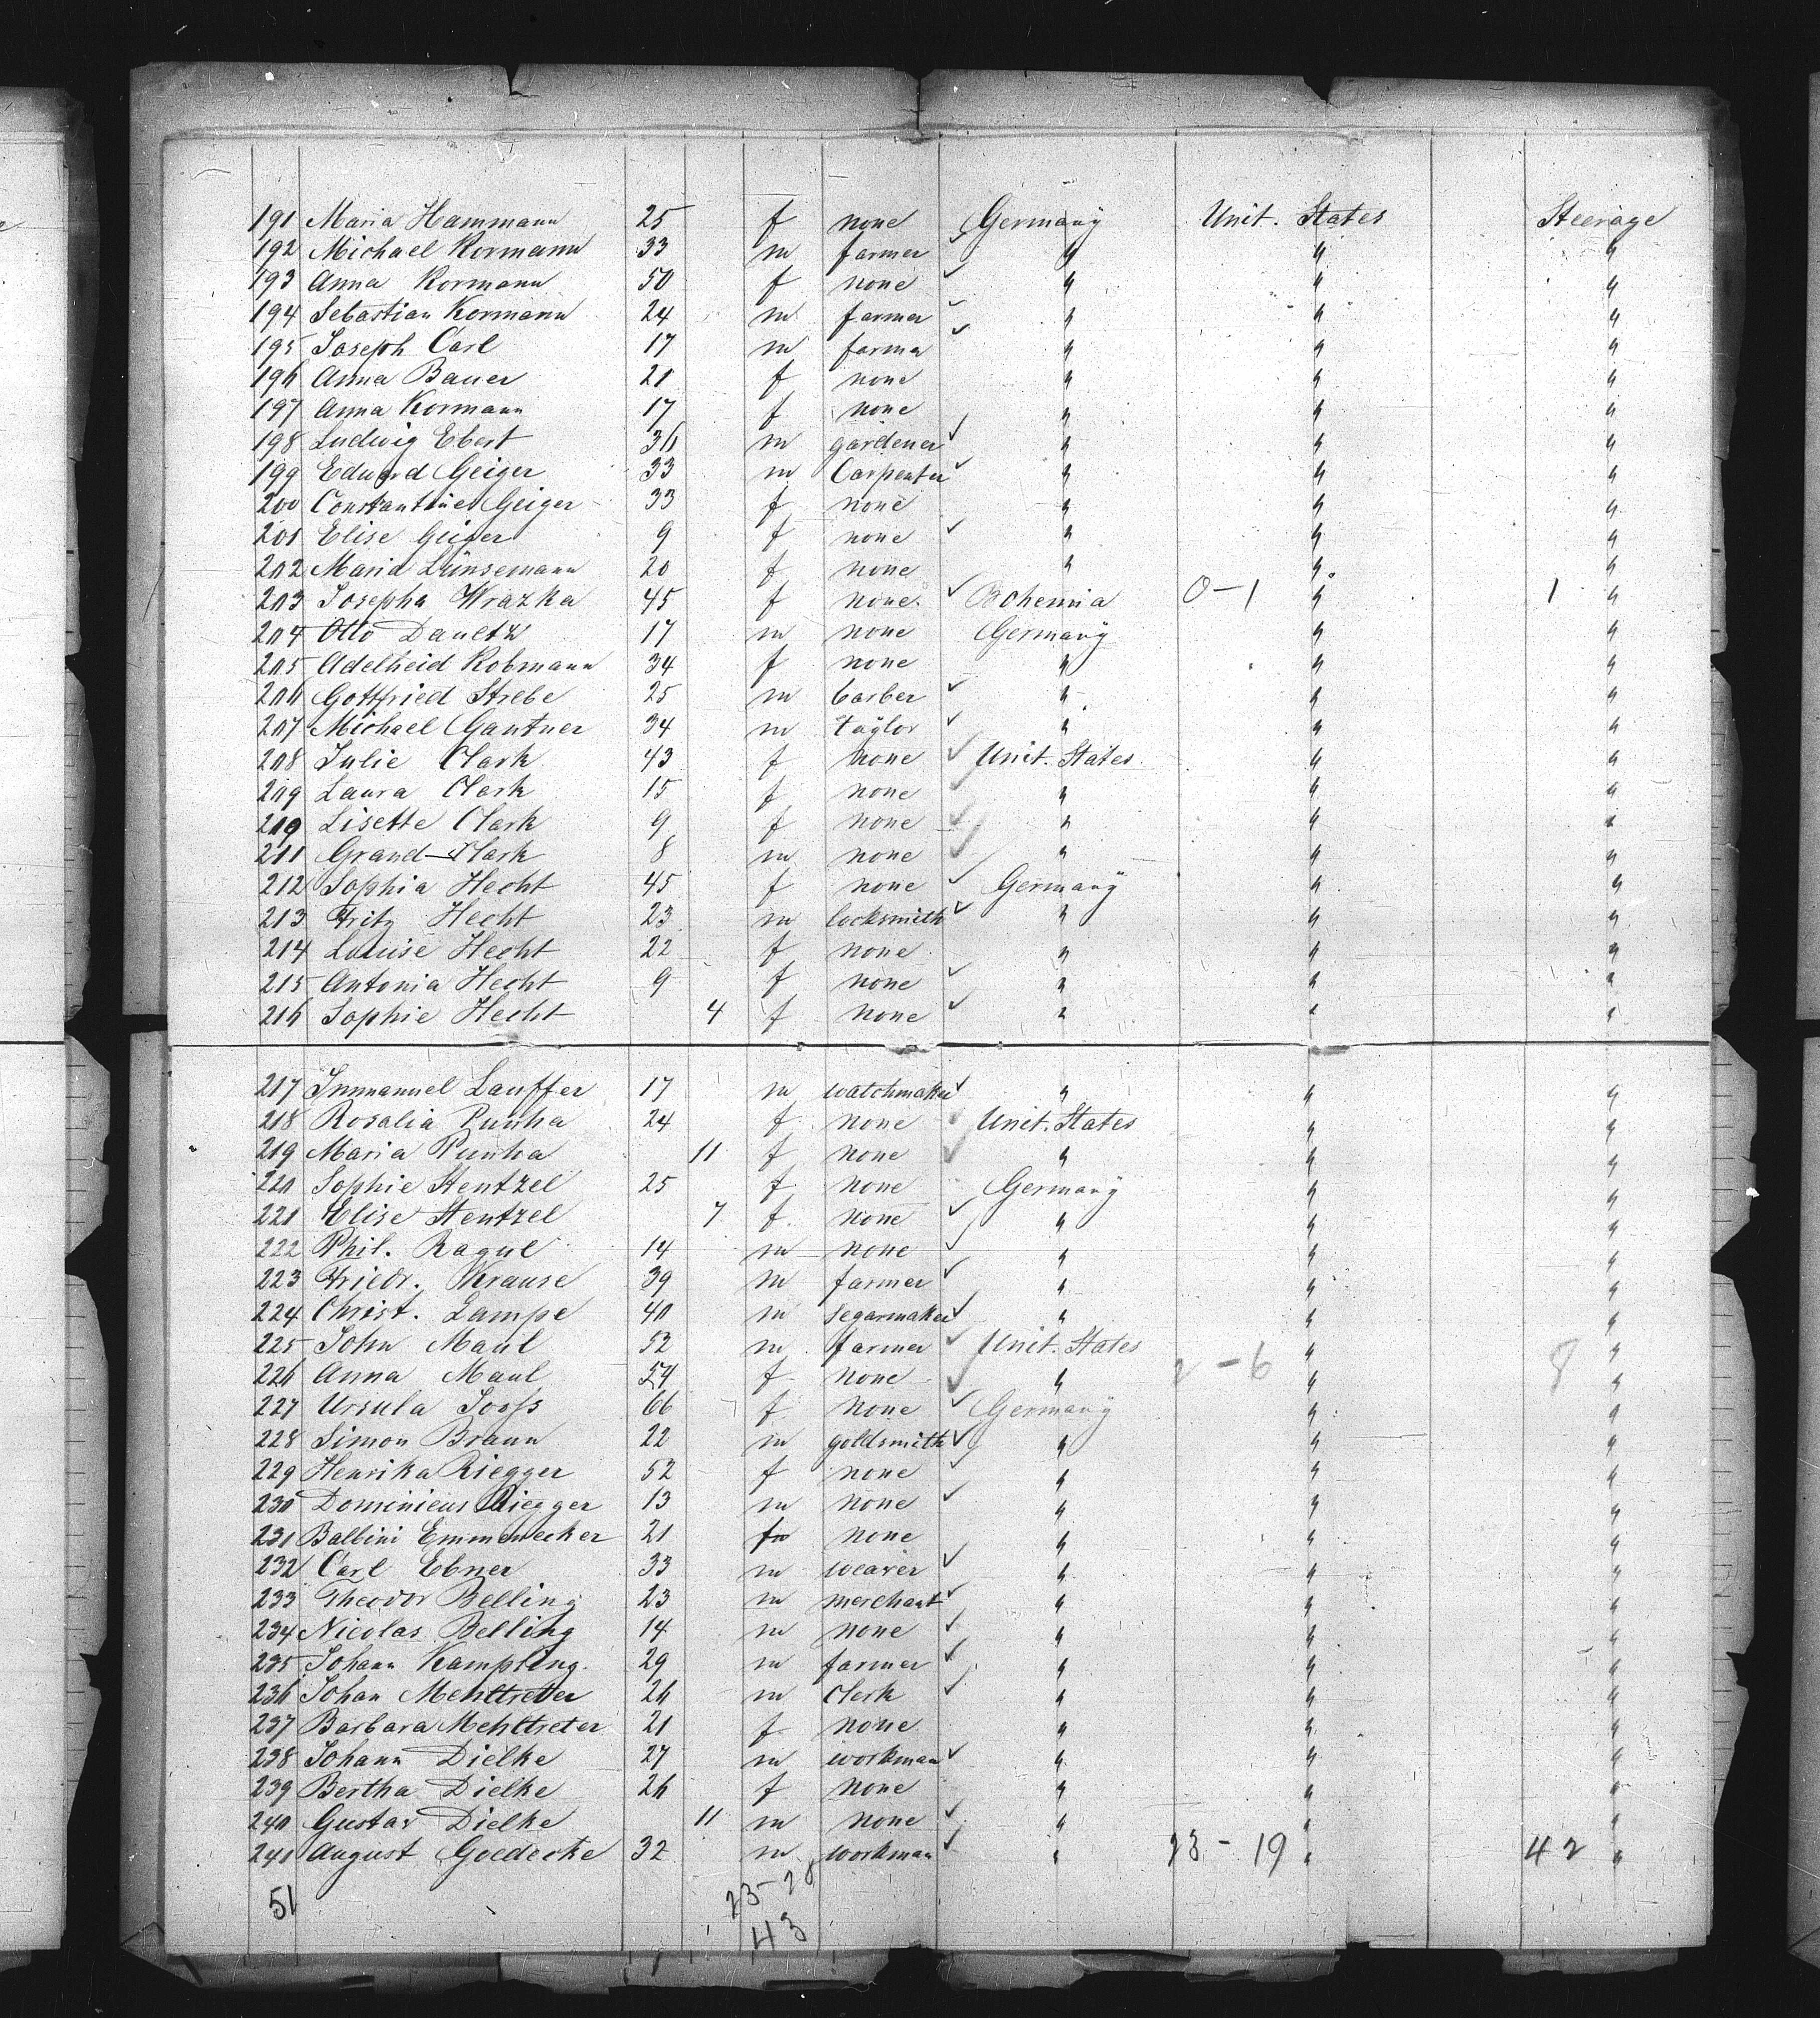 191 Maria Hammann 25 f none Germany Unit. States Steerage
192 Michael Kormann 33 m farmer " " "
193 Anna Kormann 50 f none " " "
194 Sebastian Kormann 24 m farmer " " "
195 Joseph Carl 17 m farmer " " "
196 Anna Bauer 21 f none " " "
197 Anna Kormann 17 f none " " "
198 Ludwig Ebert 36 m gardener " " "
199 Eduard Geiger 33 m Carpenter " " "
200 Constantine Geiger 33 f none " " "
201 Elise Geiger 9 f none " " "
202 Maria Lünsemann 20 f none " " "
203 Josepha Wrazka 45 f none Bohemia 0-1 " 1 "
204 Otto Dauetz 17 m none Germany " "
205 Adelheid Kobmann 34 f none " " "
206 Gottfried Strebe 25 m barber " " "
207 Michael Gantner 34 m taylor " " "
208 Julie Clark 43 f none Unit. States " "
209 Laura Clark 15 f none " " "
210 Lisette Clark 9 f none " " "
211 Grand Clark 8 m none " " "
212 Sophia Hecht 45 f none Germany " "
213 Fritz Hecht 23 m locksmith " " "
214 Louise Hecht 22 f none " " "
215 Antonia Hecht 9 f none " " "
216 Sophie Hecht 4 f none " " "
217 Immanuel Lauffer 17 m watchmaker " " "
218 Rosalia Punha 24 f none Unit. States " "
219 Maria Punha 11 f none " " "
220 Sophie Stentzel 25 f none Germany " "
221 Elise Stentzel 7 f none " " "
222 Phil. Ragul 14 m none " " "
223 Friedr. Krause 39 m farmer " " "
224 Christ. Lampe 40 m segarmaker " " "
225 John Maul 52 m farmer Unit. States " "
226 Anna Maul 54 f none " 2-6 " 8 "
227 Ursula Jooss 66 f none Germany " "
228 Simon Braun 22 m goldsmith " " "
229 Henrika Riegger 52 f none " " "
230 Dominicus Riegger 13 m none " " "
231 Balbini Emmenecker 21 f none " " "
232 Carl Ebner 33 m weaver " " "
233 Theodor Belling 23 m merchant " " "
234 Nicolas Belling 14 m none " " "
235 Johann Kampling 29 m farmer " " "
236 Johan Mehltreter 26 m clerk " " "
237 Barbara Mehltreter 21 f none " " "
238 Johann Dielke 27 m workman " " "
239 Bertha Dielke 26 f none " " "
240 Gustav Dielke 11 m none " " "
241 August Goedecke 32 m workman " 23-19 " 42 "
51 23-20
43